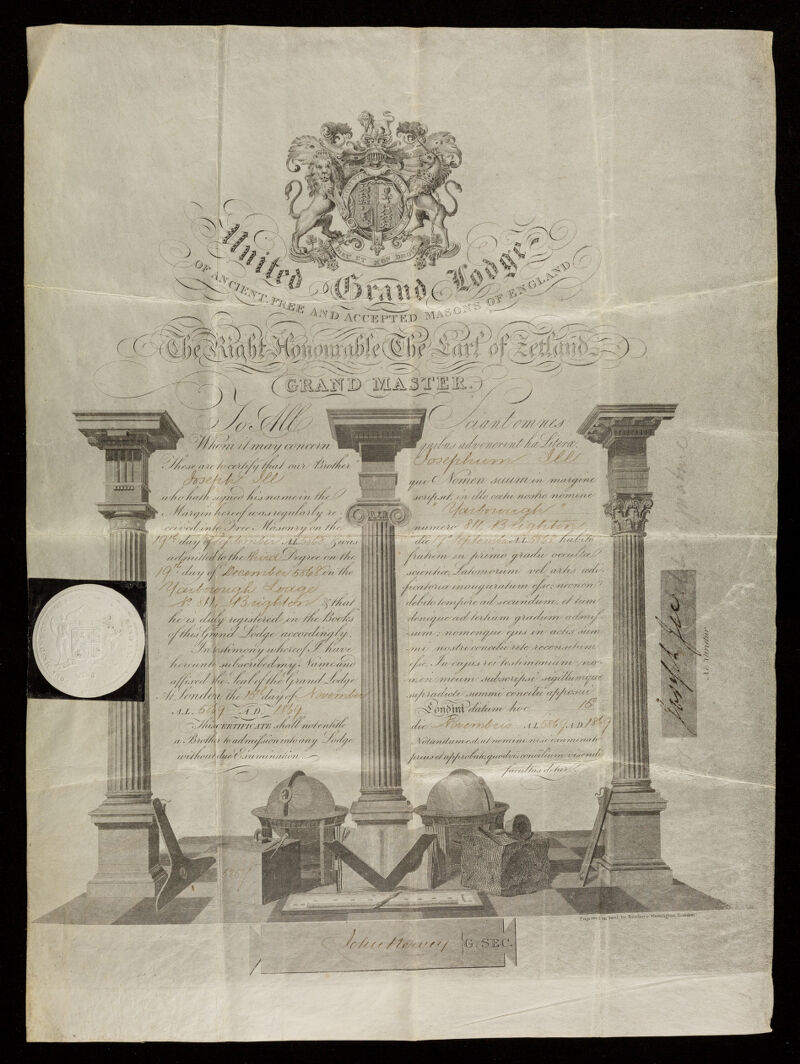 DIEU ET MON DROIT
United Grand Lodge
OF ANCIENT, FREE AND ACCEPTED MASONS OF ENGLAND
The Right Honourable The Earl of Zetland
GRAND MASTER.
To All
Whom it may concern
These are to certify that our Brother
Joseph
who hath signed his name in the
Margin hereof was regularly re-
ceived into Free Masonry on the
19th day of September A.L. & was
admitted to the third Degree on the
19th day of December 5868 in the
Yarborough Lodge
No 811 Brighton & that
he is duly registered in the Books
of this Grand Lodge accordingly.
In testimony whereof I have
hereunto subscribed my Name and
affixed the Seal of the Grand Lodge
At London the 15th day of November
A.L. 5869 A.D. 1869
This CERTIFICATE shall not entitle
a Brother to admission into any Lodge
without due Examination.
Sciant omnes
quibus advenerint hæ Literæ,
Josephum
qui Nomen suum in margine
scripsit, in illo cœtu nostro nomine
"Yarborough"
numero 811 Brighton
die 19 Septembris A.L. habito
fratrem in primo gradu occultæ
scientiæ Latomorum vel artis ædi-
ficatoria inauguratum esse; necnon
debito tempore ad secundum, et tum
denique ad tertium gradum admis-
sum: nomenque ejus in actis sum-
mi nostri concilii rite recensitum
esse. In cujus rei testimonium no-
men meum subscripsi sigillumque
supradicti summi concilii apposui
Londini datum hoc 15
die Novembris A.L. 5869 A.D. 1869
Notandum est, ut nemini nisi examinato
prius et approbato, quodvis concilium visendi
facultas detur.
John Hervey G. SEC.
Joseph
Ne Varietur